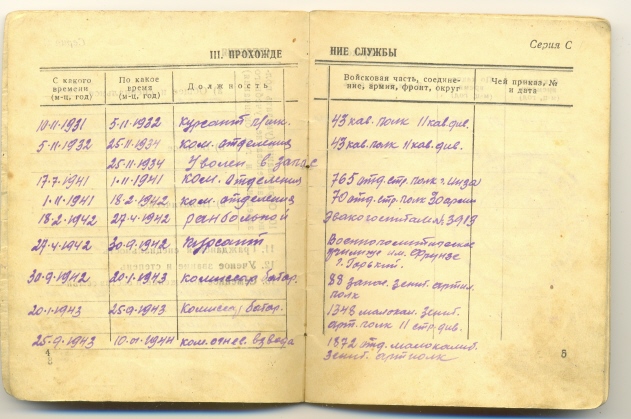 Серия С
III. ПРОХОЖДЕ НИЕ СЛУЖБЫ
С какого времени (м-ц, год) По какое время (м-ц, год) Должность Войсковая часть, соедине- ние, армия, фронт, округ Чей приказ, № и дата
10·11·1931 5·11·1932 Курсант 43 кав. полк 11 кав. див.
5·11·1932 25·11·1934 ком. отделения 43 кав. полк 11 кав. див.
25·11·1934 Уволен в запас
17·7·1941 1·11·1941 ком. отделения 765 отд. стр. полк г. Инза
1·11·1941 18·2·1942 ком. отделения 70 отд. стр. полк 30 армии
18·2·1942 27·4·1942 ранбольной эвакогоспиталь 3919
27·4·1942 30·9·1942 Курсант Военнополитическое
училище им. Фрунзе
г. Горький.
30·9·1942 20·1·1943 комиссар батар. 88 запас. зенит. артил.
полк
20·1·1943 25·9·1943 Комиссар батар. 1348 малокал. зенит.
арт. полк 11 стр. див.
25·9·1943 10·01·1944 ком. огнев. взвода 1872 отд. малокалиб.
зенит. артполк
4
8
5
11.
12. Ученое звание и степень